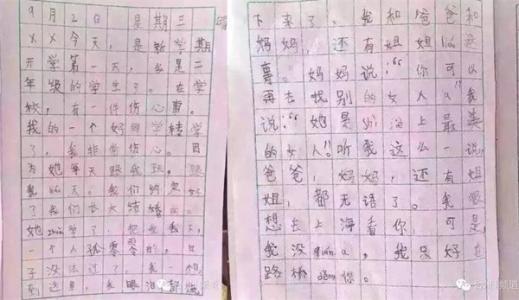 9月2日 星期三 晴
××今天,是新学期
开学第一天,我是二
年级的学生了。在学
校,有一件伤心事。
我的一个好同学转学
了,我非常伤心。因
为她每天跟我玩,
我们约定好
了我们长大结婚。
她zhuǎn学了,把我丢下,
一个人孤零零的,日
子没法过了!我一想
到这里,我眼泪都流
下来了。我和爸爸和
妈妈,还有姐姐liáo这
事。妈妈说:“你可以
再去找别的女人a!”我
说:“她是shì海上最美
的女人!”听我这么一说,
爸爸,妈妈,还有姐
姐,都无语了。我很
想去上海看你,可是,
我没qián,我只好在
路桥děng你。